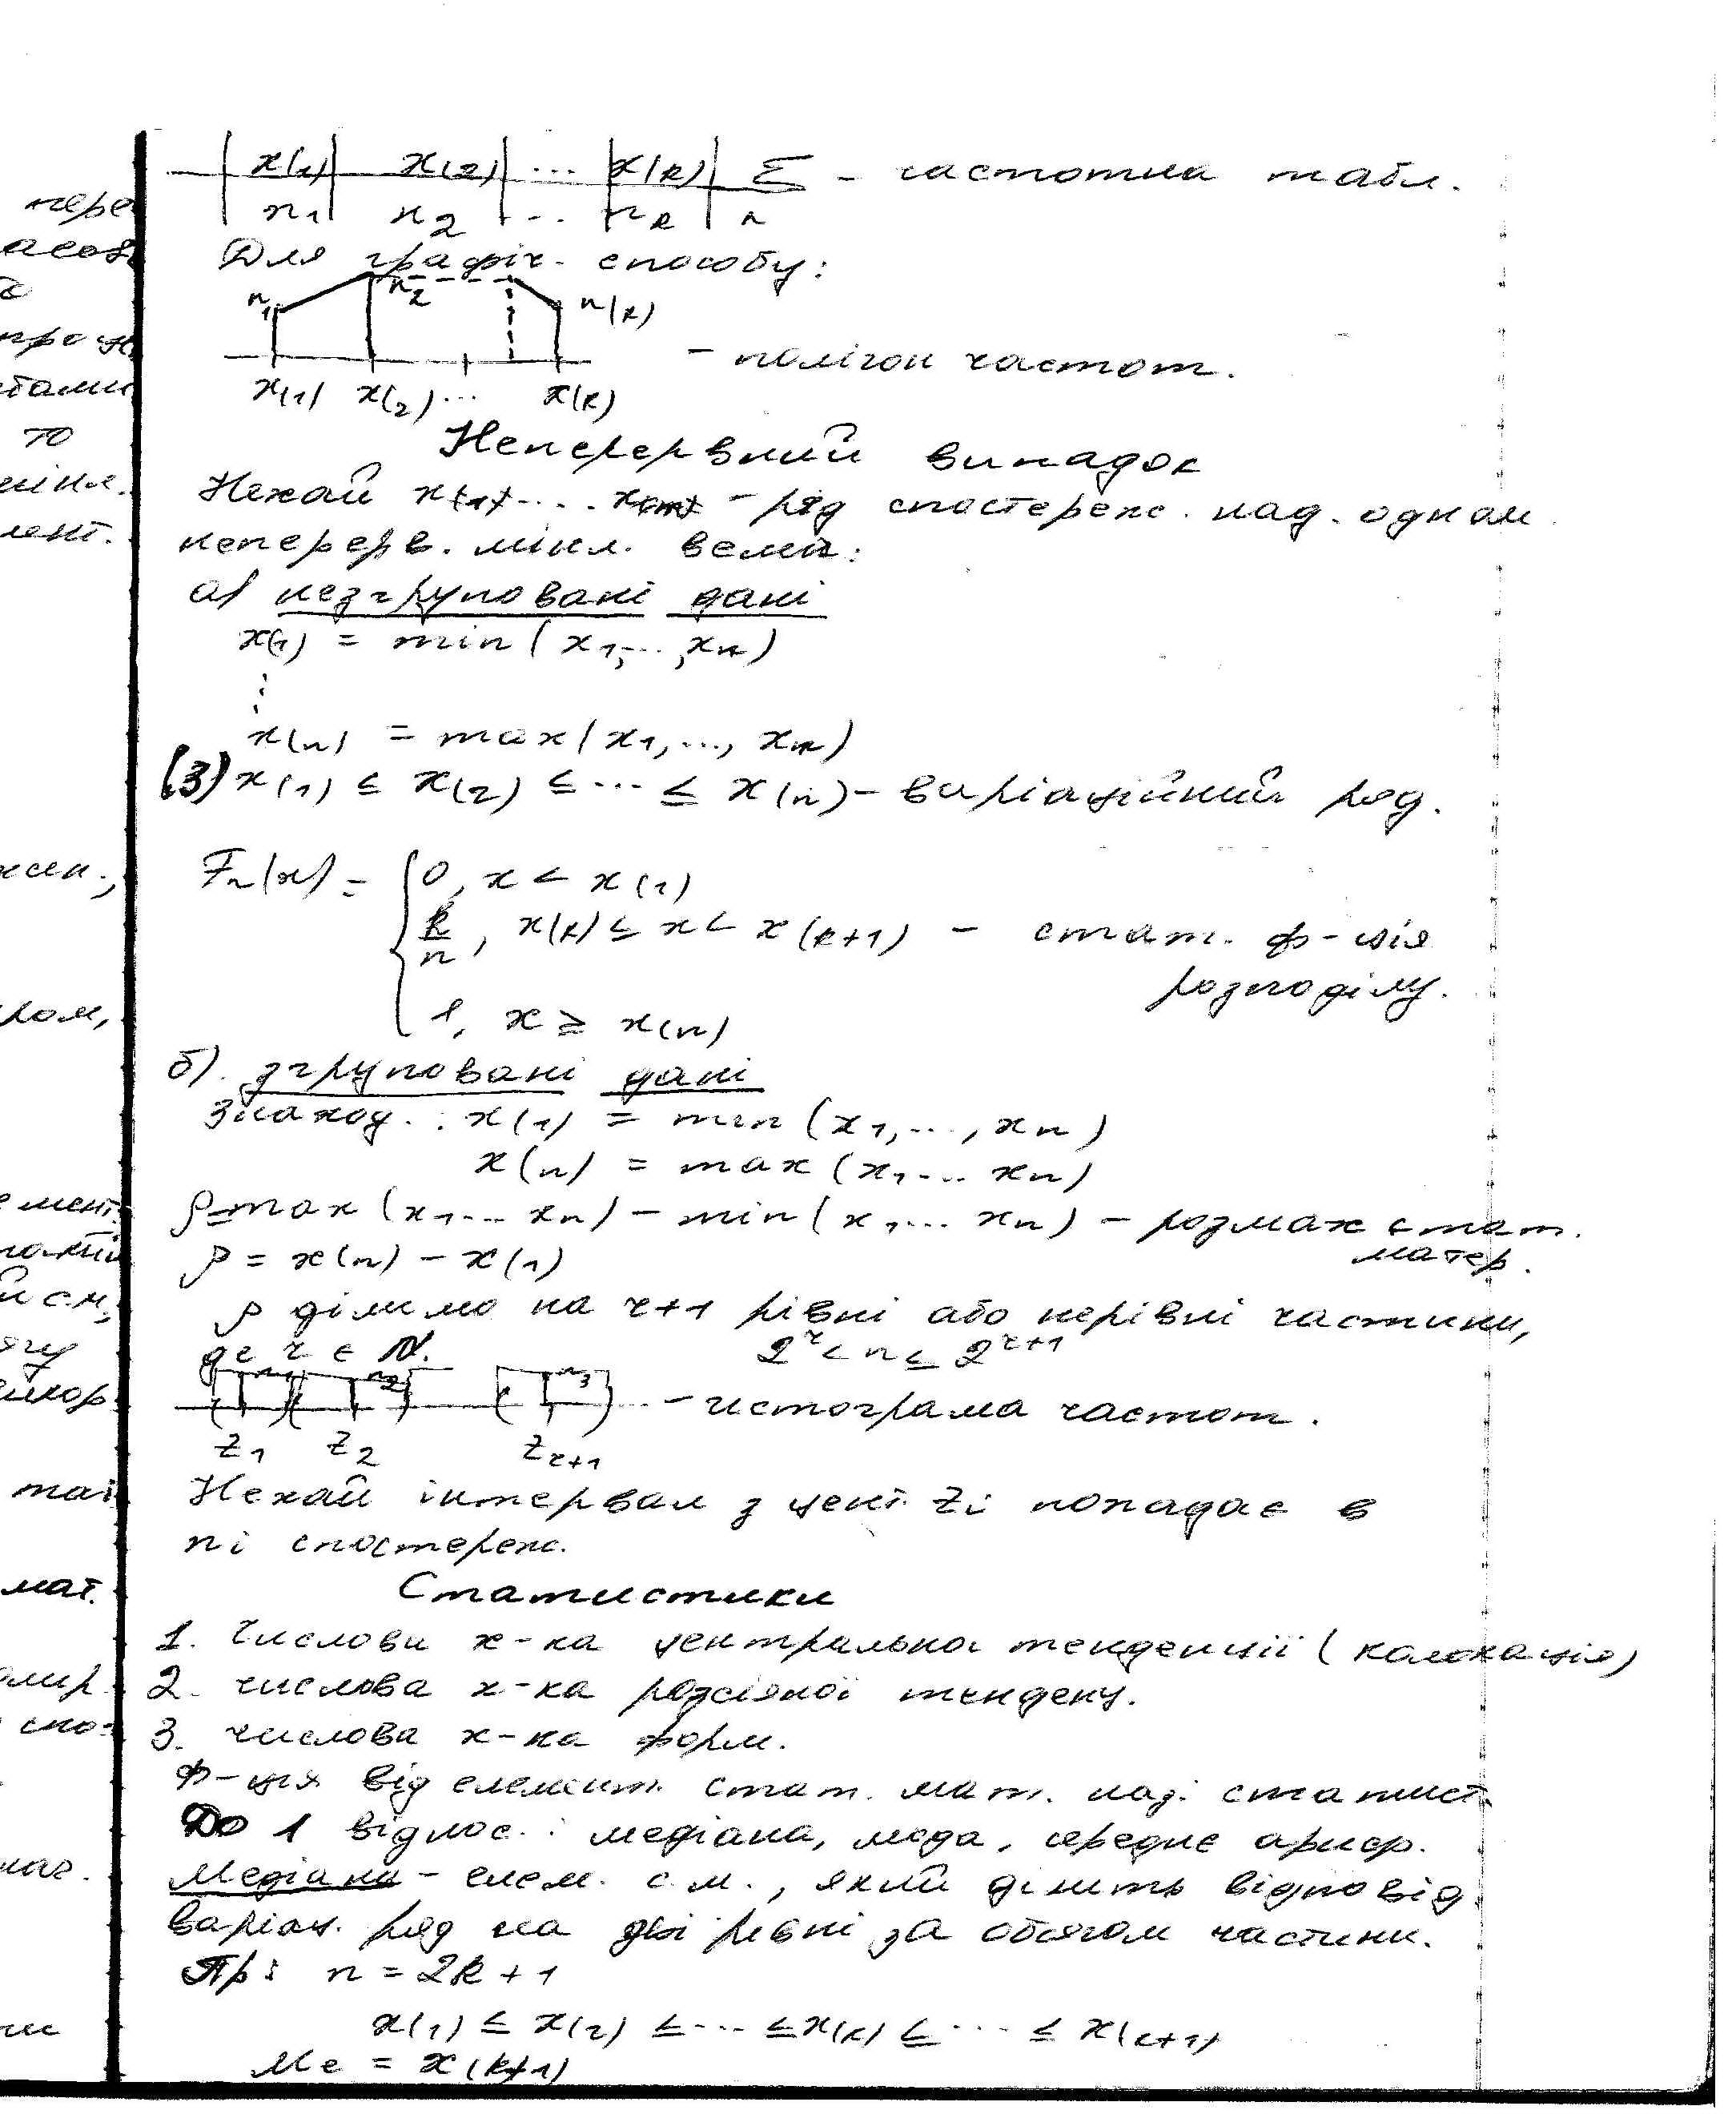 x(1) x(2) ... x(k) Σ - частотна табл.
n1 n2 ... nk n
Для графіч. способу:
n1 n2 n(k)
- полігон частот.
x(1) x(2) ... x(k)
Неперервний випадок
Нехай x(1) ... x(n) - ряд спостереж. над. одном
неперерв. мінл. велич:
а) незгруповані дані
x(1) = min(x1, ..., xn)
⋮
x(n) = max(x1, ..., xn)
(3) x(1) ≤ x(2) ≤ ... ≤ x(n) - варіаційний ряд.
Fn(x) = { 0, x < x(1)
k/n, x(k) ≤ x < x(k+1) - стат. ф-ція
розподілу.
1, x ≥ x(n)
б). згруповані дані
Знаход. : x(1) = min (x1, ..., xn)
x(n) = max (x1 ... xn)
ρ = max (x1 ... xn) - min (x1 ... xn) - розмах стат.
матер.
ρ = x(n) - x(1)
ρ ділимо на r+1 рівні або нерівні частини,
де r ∈ N. 2^r < n ≤ 2^(r+1)
n1 n2 n3
... - гістограма частот.
z1 z2 zr+1
Нехай інтервал з цент. zi попадає в
ni спостереж.
Статистики
1. Числови х-ка центральної тенденції (
2. числова х-ка розсіяної тенденц.
3. числова х-ка форм.
Ф-ція від елемент. стат. мат. наз. статист.
До 1 віднос. : медіана, мода, середнє ариф.
Медіана - елем. с.м., який ділить відповід.
варіац. ряд на дві рівні за обсягом частини.
Пр: n = 2k + 1
x(1) ≤ x(2) ≤ ... ≤ x(k) ≤ ... ≤ x(k+1)
Me = x(k+1)